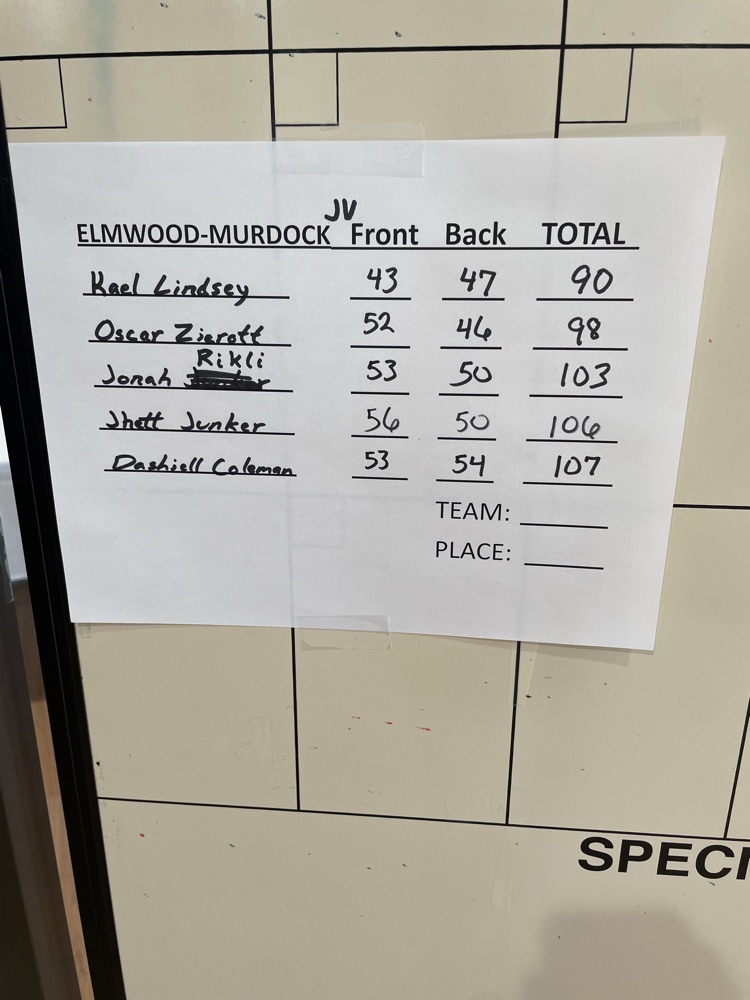 JV
ELMWOOD-MURDOCK Front Back TOTAL
Kael Lindsey 43 47 90
Oscar Zierott 52 46 98
Rikli
Jonah 53 50 103
Jhett Junker 56 50 106
Dashiell Coleman 53 54 107
TEAM:
PLACE: